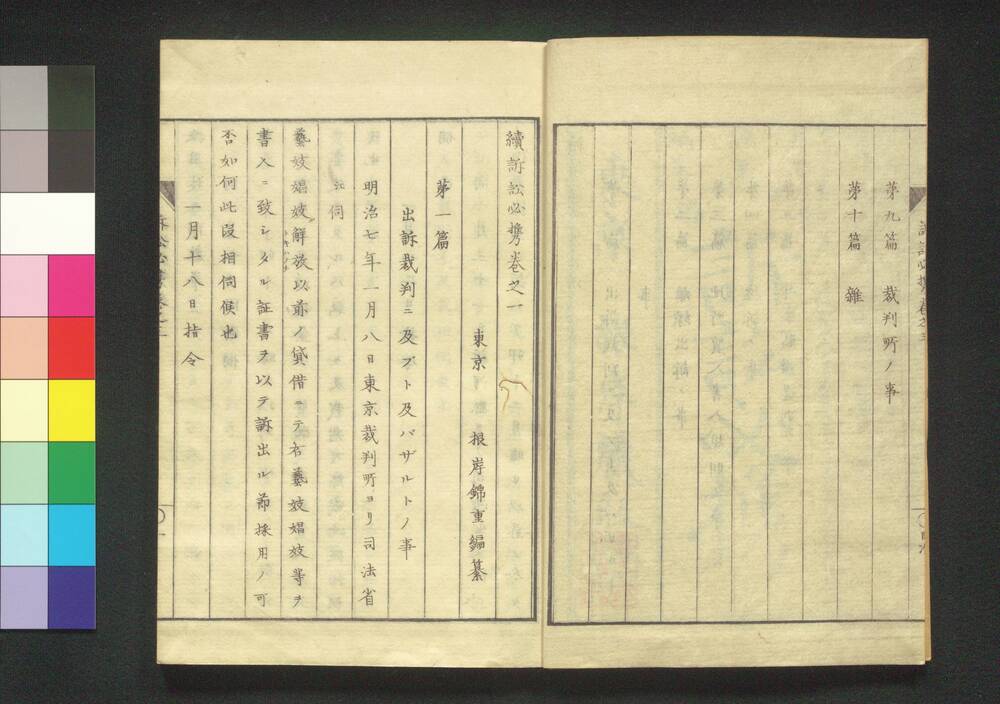 第九篇 裁判所ノ事
第十篇 雜
續訴訟必攜卷之一
東京 根岸錦重編纂
第一篇
出訴裁判ニ及ブト及バザルトノ事
明治七年一月八日東京裁判所ヨリ司法省
伺
藝妓娼妓解放以前ノ貸借ニテ右藝妓娼妓等ヲ
書入ニ致シタル証書ヲ以テ訴出ル節採用ノ可
否如何此段相伺候也
一月十八日指令